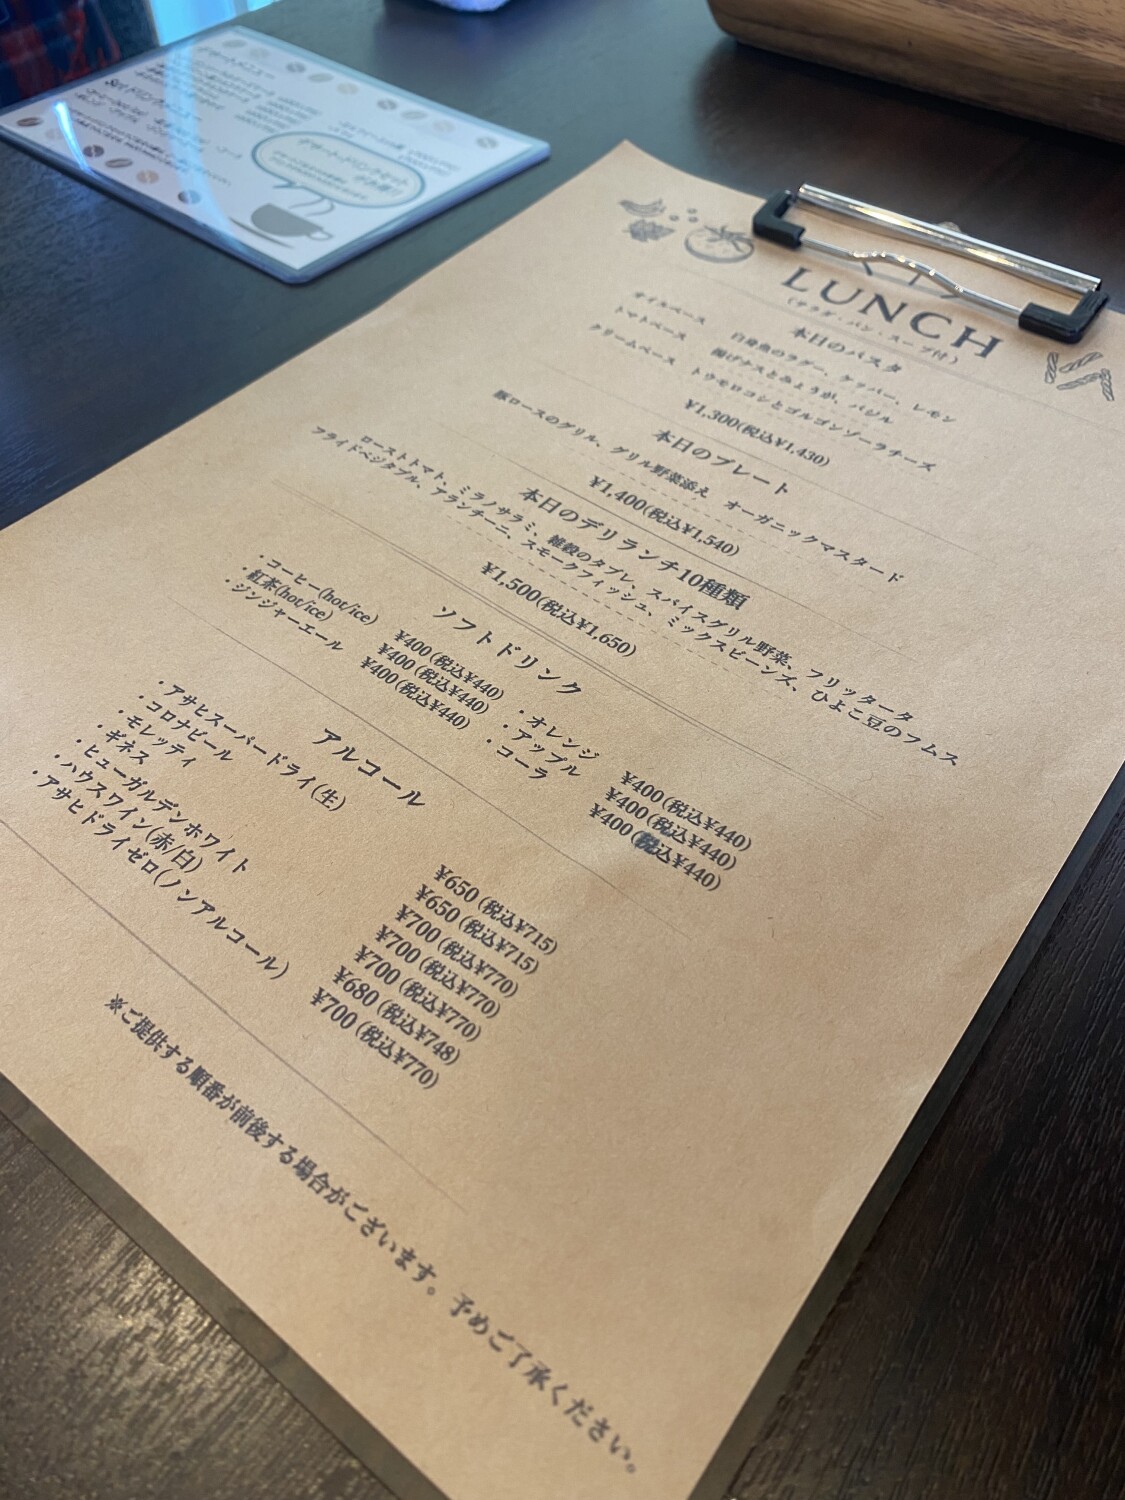 LUNCH
(サラダ・パン・スープ付)
本日のパスタ
オイルベース 白身魚のラグー、ケッパー、レモン
トマトベース 揚げナスとみょうが、バジル
クリームベース トウモロコシとゴルゴンゾーラチーズ
¥1,300(税込¥1,430)
本日のプレート
豚ロースのグリル、グリル野菜添え オーガニックマスタード
¥1,400(税込¥1,540)
本日のデリランチ10種類
ローストトマト、ミラノサラミ、雑穀のタブレ、スパイスグリル野菜、フリッタータ
フライドベジタブル、アランチーニ、スモークフィッシュ、ミックスビーンズ、ひよこ豆のフムス
¥1,500(税込¥1,650)
ソフトドリンク
・コーヒー(hot/ice) ¥400(税込¥440)
・紅茶(hot/ice) ¥400(税込¥440)
・ジンジャーエール ¥400(税込¥440)
・オレンジ ¥400(税込¥440)
・アップル ¥400(税込¥440)
・コーラ ¥400(税込¥440)
アルコール
・アサヒスーパードライ(生) ¥650(税込¥715)
・コロナビール ¥650(税込¥715)
・モレッティ ¥700(税込¥770)
・ギネス ¥700(税込¥770)
・ヒューガルデンホワイト ¥700(税込¥770)
・ハウスワイン(赤/白) ¥680(税込¥748)
・アサヒドライゼロ(ノンアルコール) ¥700(税込¥770)
※ご提供する順番が前後する場合がございます。予めご了承ください。
デザートメニュー
Setドリンクメニュー
デザート・ドリンクセット